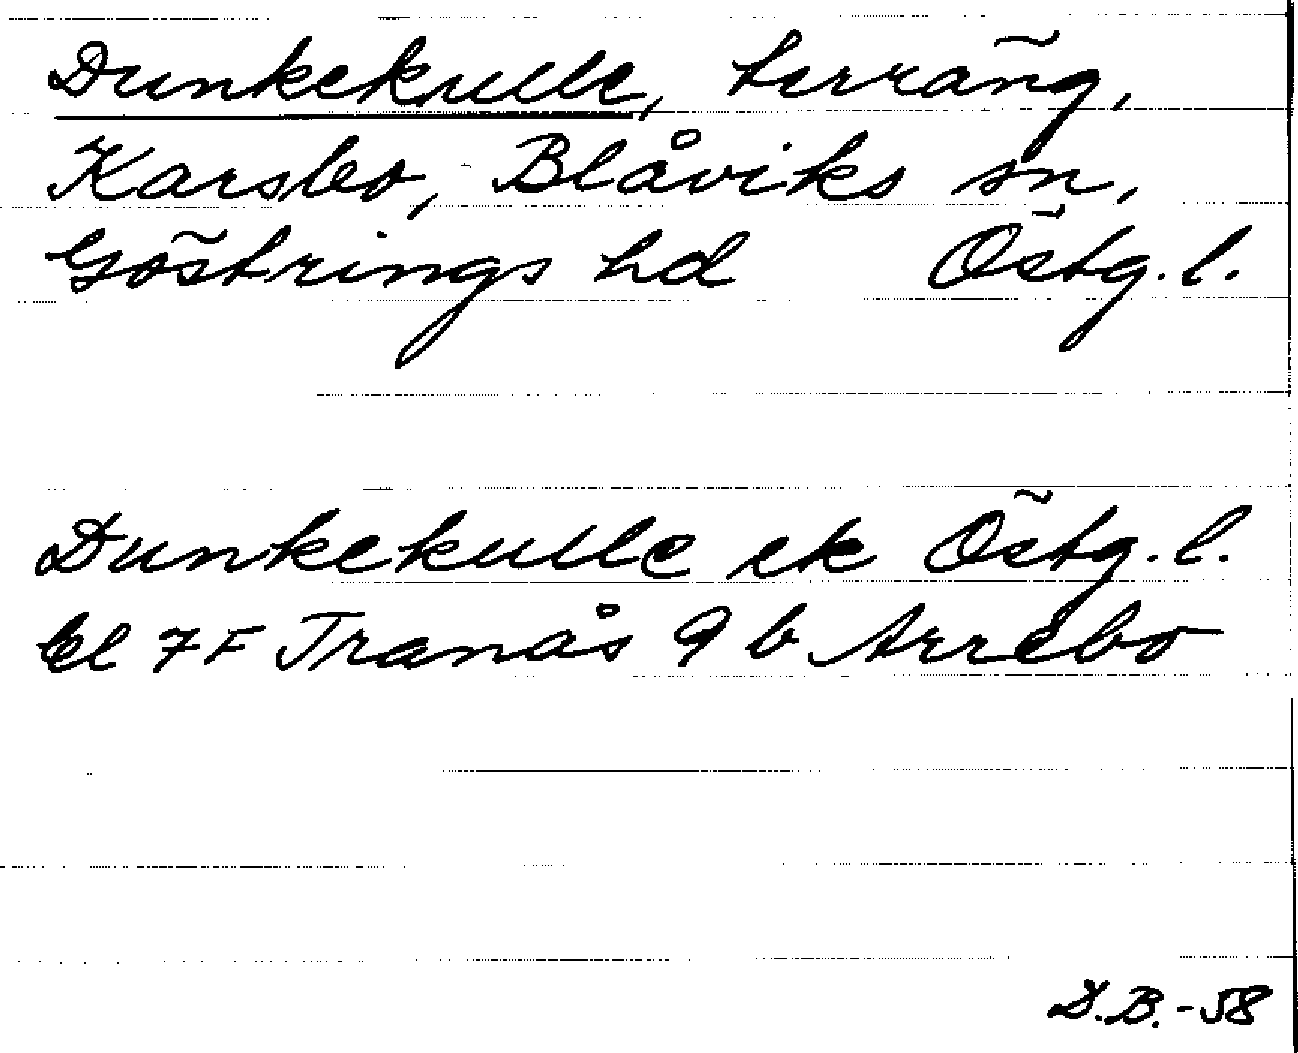 Dunkekulle, terräng,
Karsbo, Blåviks sn,
Göstrings hd Östg. l.
Dunkekulle ek Östg. l.
bl 7F Tranås 9 b Arrebo
D.B. - 58